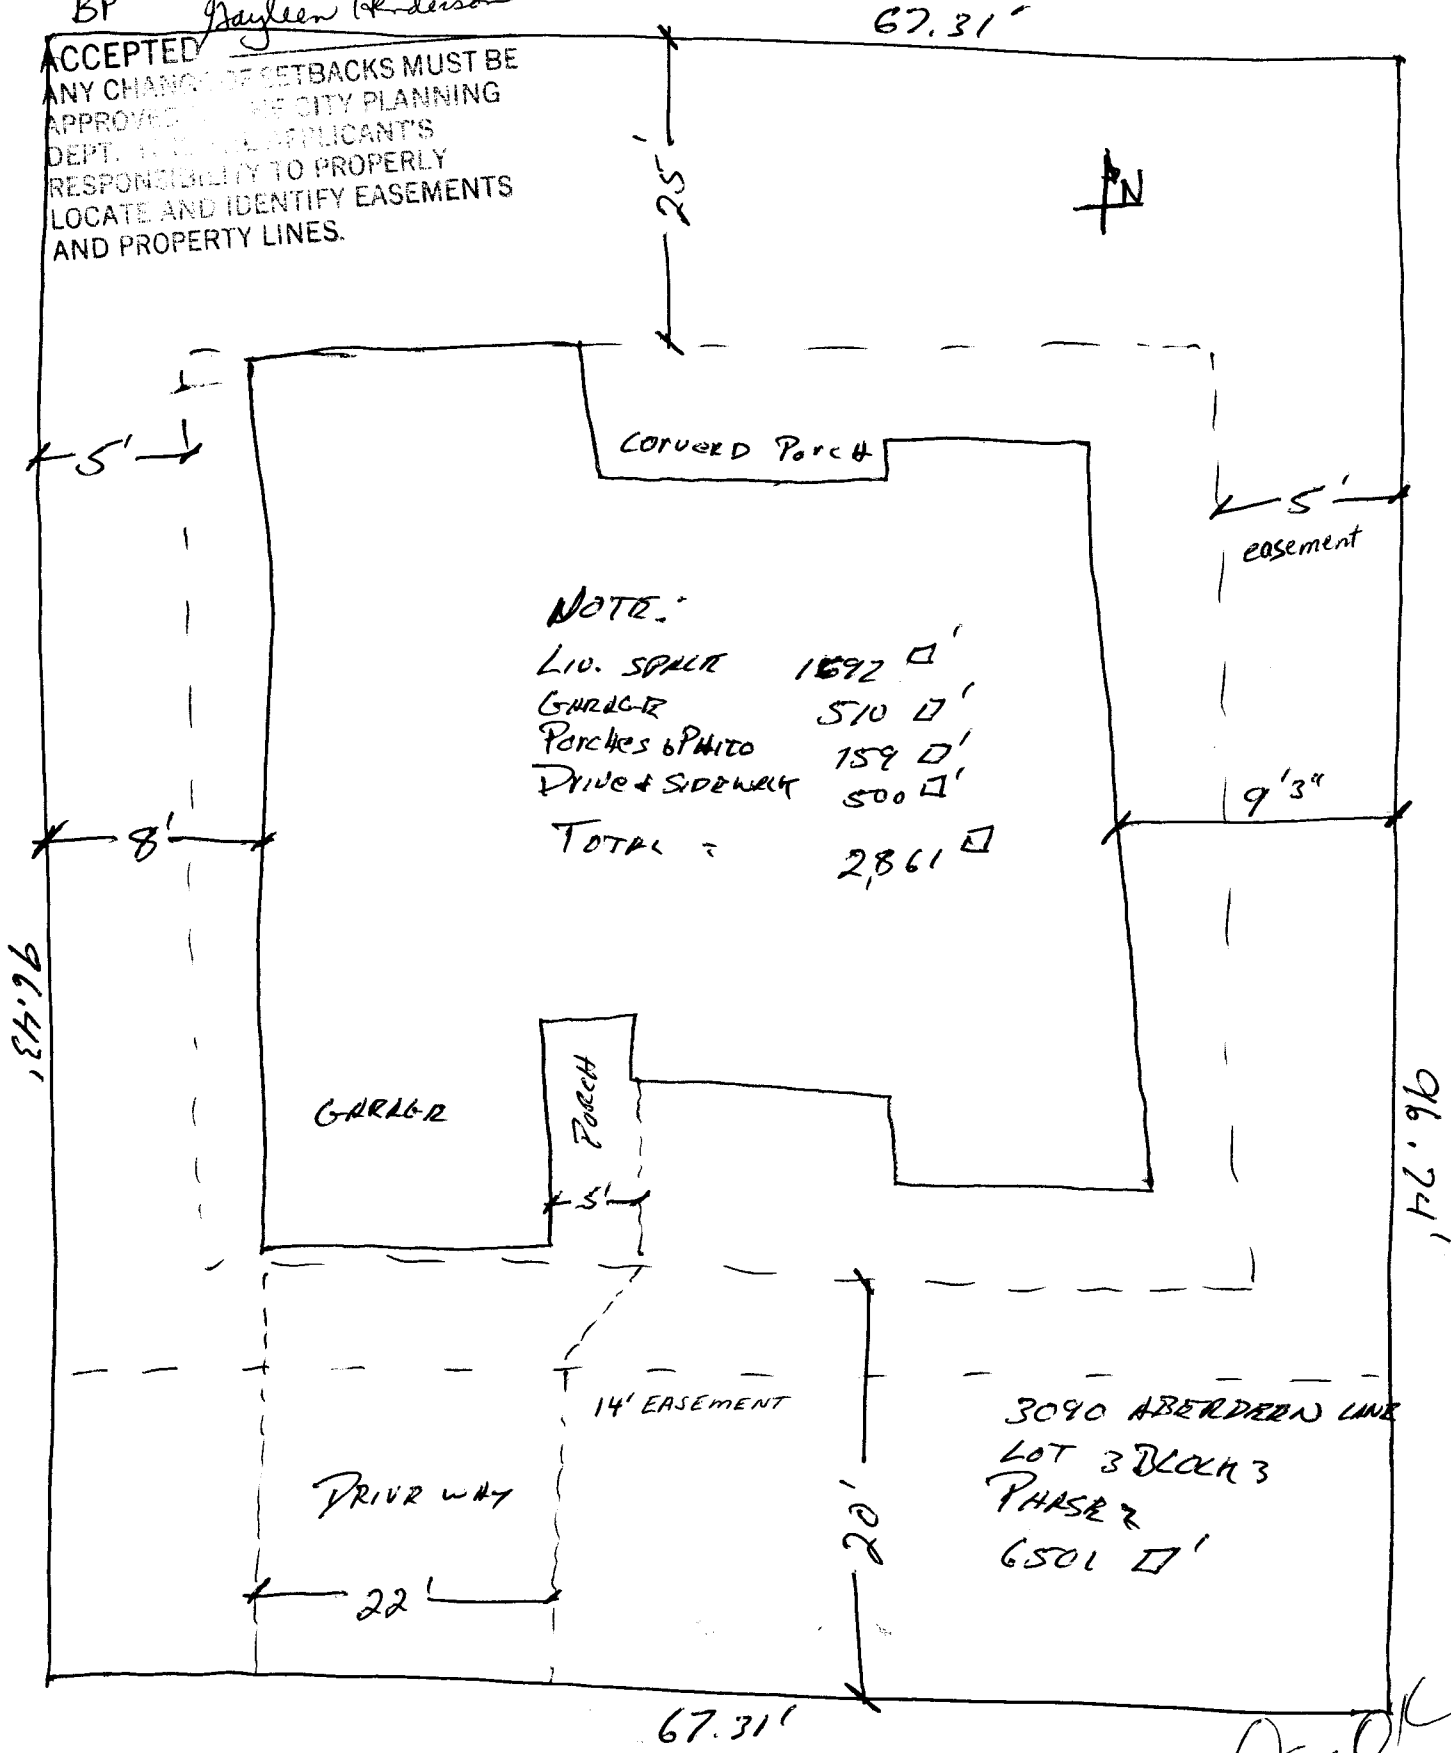 BP Gayleen Henderson
67.31'
ACCEPTED
ANY CHANGE OF SETBACKS MUST BE
APPROVED THE CITY PLANNING
DEPT. APPLICANT'S
RESPONSIBILITY TO PROPERLY
LOCATE AND IDENTIFY EASEMENTS
AND PROPERTY LINES.
25'
N
5'
CORVERD PORCH
5'
easement
NOTE:
LIV. SPACE 1692 □'
GARAGE 510 □'
Porches & PAITO 159 □'
DRIVE & SIDEWALK 500 □'
TOTAL = 2,861 □
8'
9'3"
96.43'
96.74'
GARAGE
PORCH
5'
14' EASEMENT
3090 ABERDEEN LANE
LOT 3 BLOCK 3
PHASE 2
6501 □'
DRIVE WAY
20'
22'
67.31'
OK